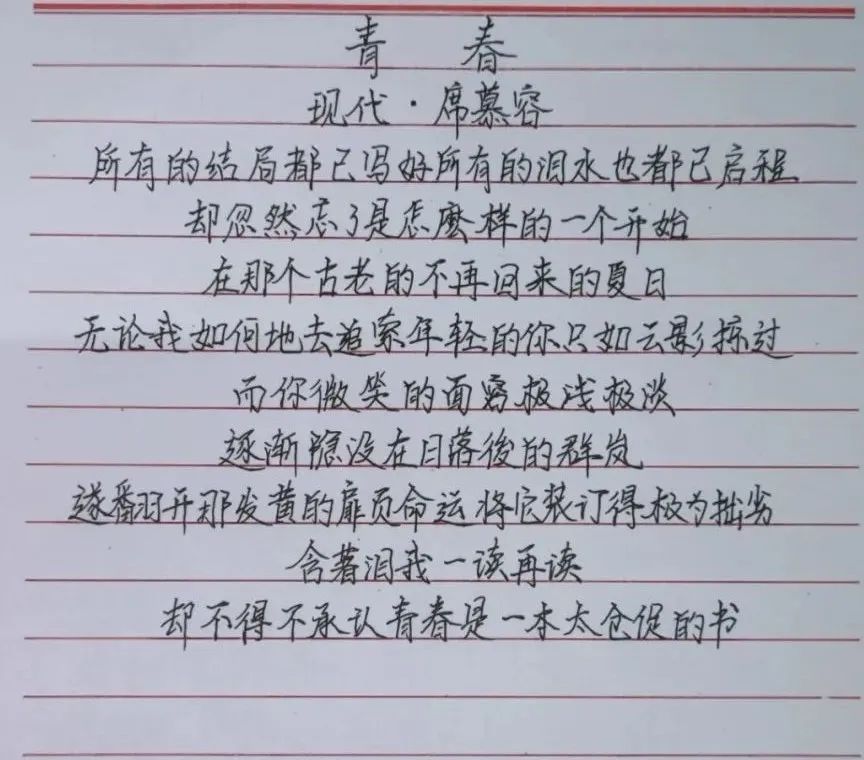 青 春
现代·席慕容
所有的结局都已写好所有的泪水也都已启程
却忽然忘了是怎麽样的一个开始
在那个古老的不再回来的夏日
无论我如何地去追索年轻的你只如云影掠过
而你微笑的面容极浅极淡
逐渐隐没在日落後的群岚
遂翻开那发黄的扉页命运将它装订得极为拙劣
含著泪我一读再读
却不得不承认青春是一本太仓促的书